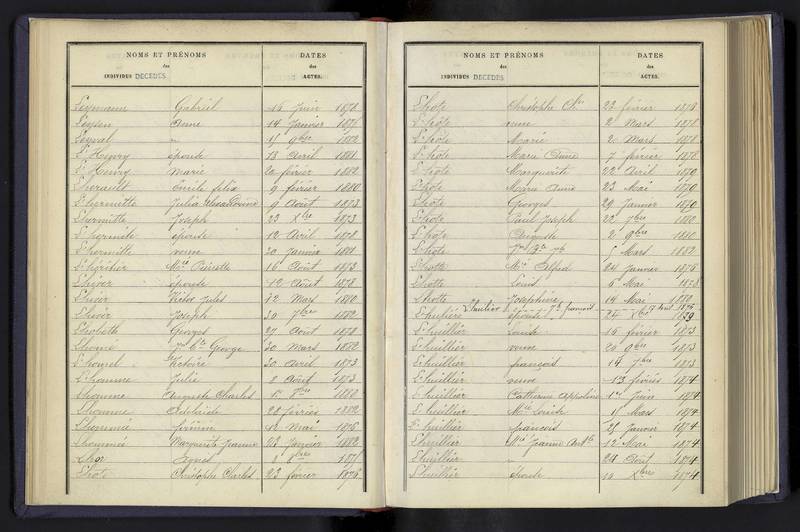 NOMS ET PRÉNOMS DATES
des des
INDIVIDUS DÉCÉDÉS ACTES.
Leymann Gabriel 16 Juin 1878
Leysen Anne 14 Janvier 1878
Leyval " 9bre 1882
L'Henry épouse 13 Avril 1881
L'Henry Marie 20 février 1882
Lherault Emile félix 9 février 1880
Lhermitte Julia 9 Août 1873
Lhermitte Joseph 23 Xbre 1873
Lhermitte épouse 12 Avril 1878
Lhermitte veuve 20 Janvier 1881
Lhéritier Mlle Pierrette 16 Août 1873
Lhiver épouse 12 Août 1878
Lhivor Victor Jules 12 Mars 1880
Lhivor Joseph 30 7bre 1882
Lhobette Georges 27 Août 1878
Lhomé George 20 Mars 1882
L'homel Victoire 20 Avril 1873
L'homme Julie 8 Août 1873
Lhomme Auguste Charles 1880
Lhomme Adélaïde 28 février 1882
Lhommé firmin 12 Mai 1875
Lhommé Marguerite Jeanne 23 Janvier 1882
Lhor Agnès 8 1871
Lhote Christophe Charles 23 février 1878
NOMS ET PRÉNOMS DATES
des des
INDIVIDUS DÉCÉDÉS ACTES.
Lhote Christophe Chles 23 février 1878
L'hôte veuve 2 Mars 1878
L'hôte Marie 20 Mars 1878
L'hote Marie Anne 7 février 1878
L'hote Marguerite 22 Avril 1879
L'hote Marie Anne 23 Mai 1879
L'hote Georges 29 Janvier 1870
L'hote Paul Joseph 22 7bre 1880
L'hote Auguste 2 9bre 1880
L'hote Mars 1882
Lhotte Mlle Alfred 24 Janvier 1875
Lhotte Louis 6 Mai 1878
Lhotte Joséphine 14 Mai 1880
Lhulier françois 17 Août 1875
Lhulière épouse 24 Xbre 1879
L'huillier Louise 16 février 1873
L'huillier veuve 20 9bre 1873
Lhuillier françois 14 7bre 1873
Lhuillier veuve 13 février 1874
Lhuillier Catherine Appoline 1er Juin 1874
L'huillier Mlle Louise 11 Mars 1874
L'huillier françois 21 Janvier 1874
Lhuillier Mlle Jeanne 12 Mai 1874
Lhuillier " 24 Août 1874
Lhuillier épouse 10 Xbre 1874